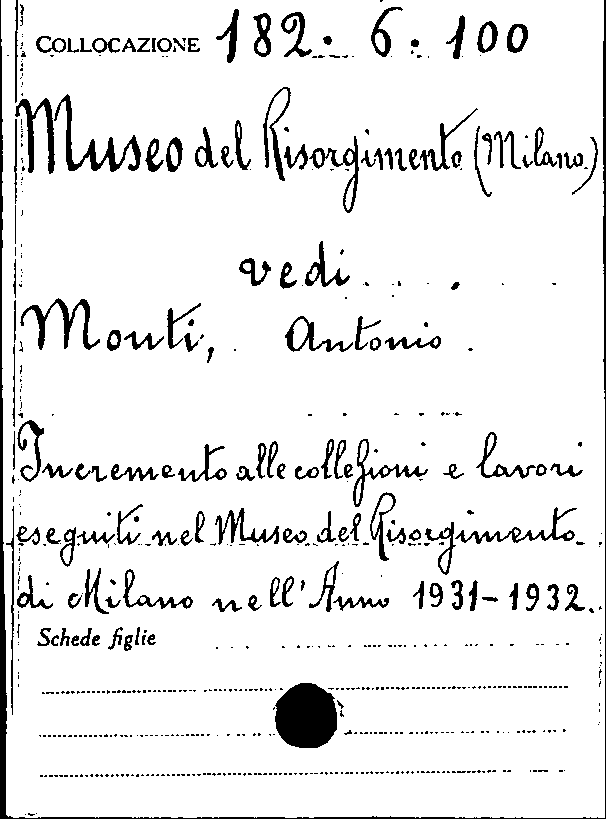 COLLOCAZIONE 182. 6. 100
Museo del Risorgimento (Milano)
vedi
Monti, Antonio.
Incremento alle collezioni e lavori
eseguiti nel Museo del Risorgimento
di Milano nell'Anno 1931-1932.
Schede figlie